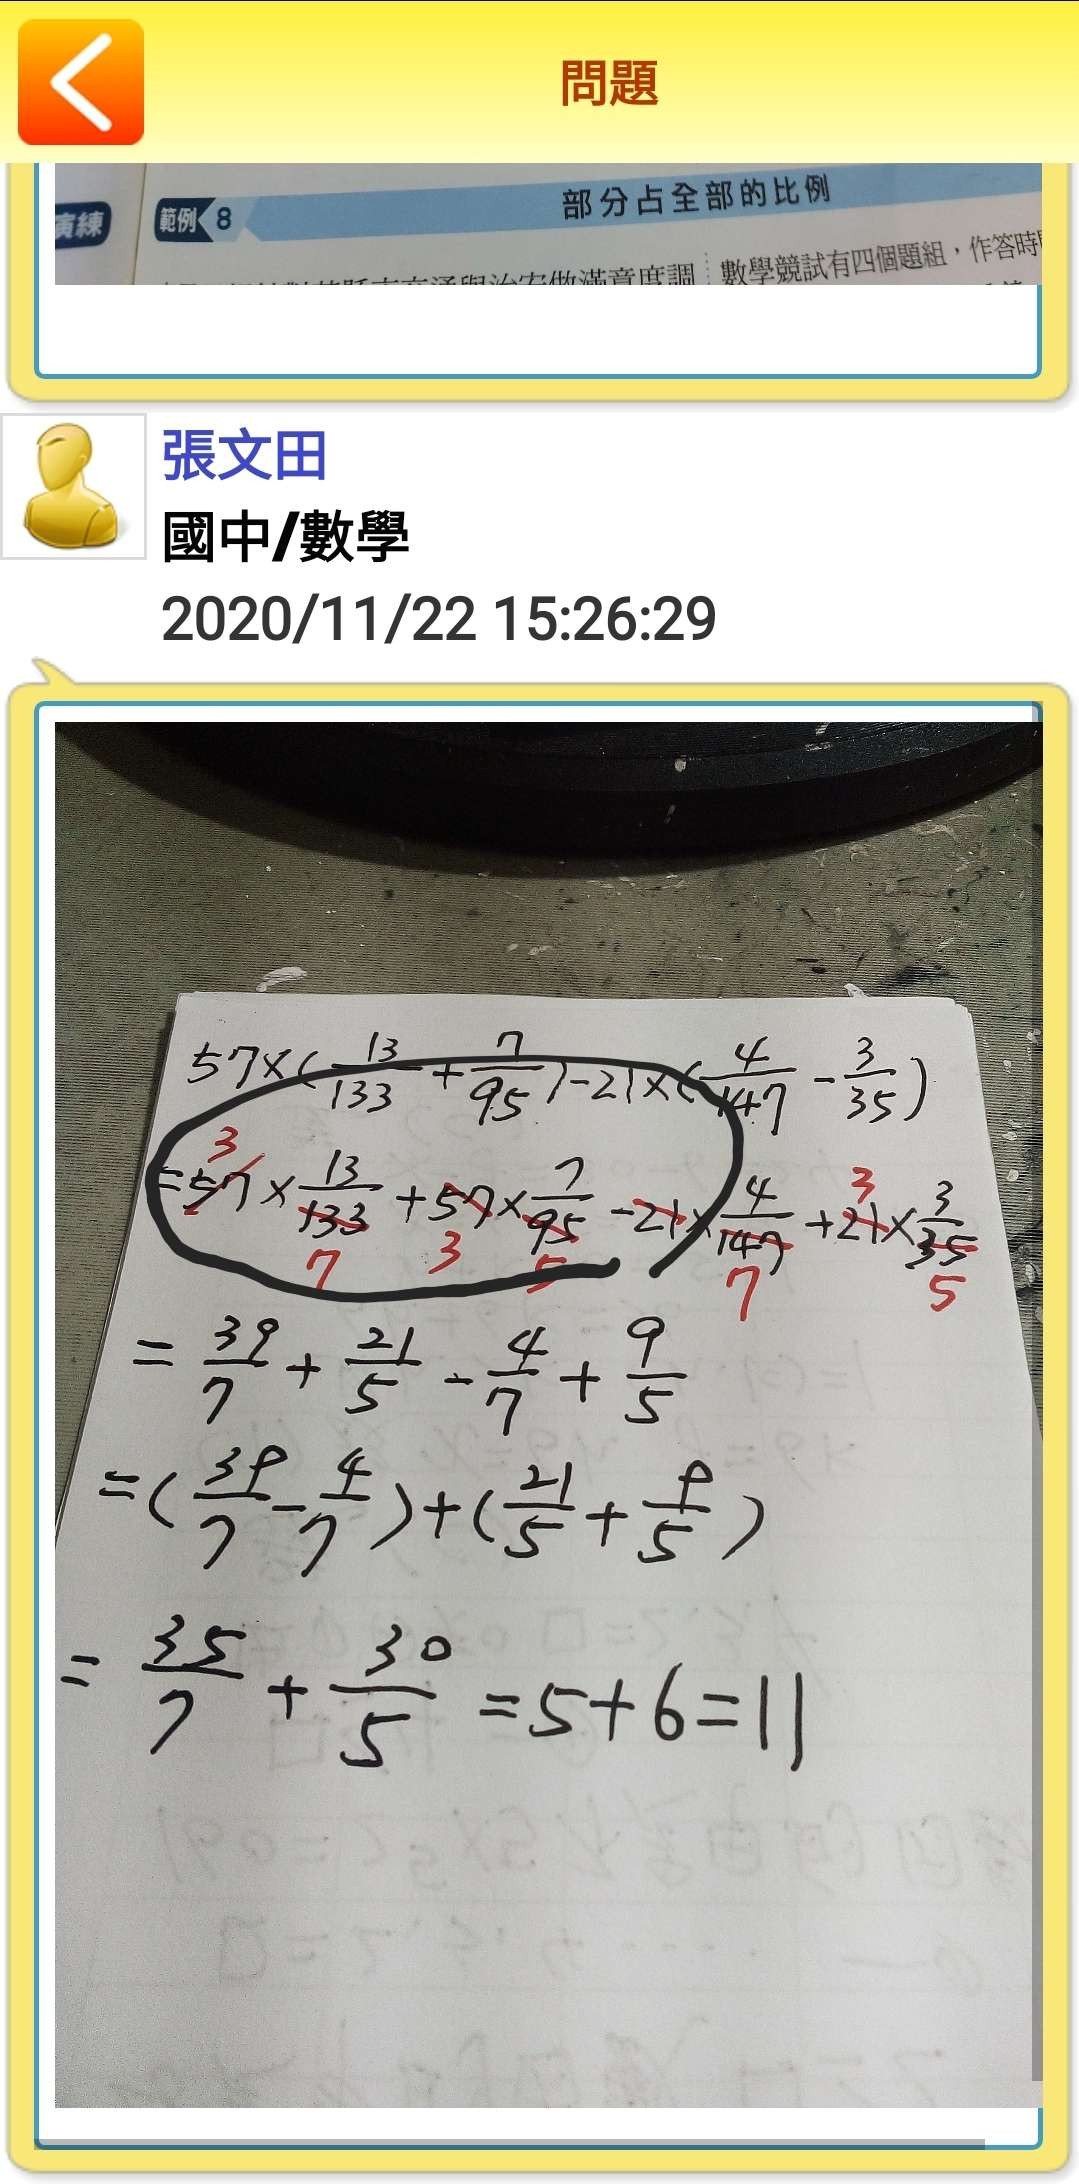 問題
演練
範例 8
部分占全部的比例
數學競試有四個題組，作答時
張文田
國中/數學
2020/11/22 15:26:29
57×(13/133+7/95)-21×(4/147-3/35)
=57×13/133+57×7/95-21×4/147+21×3/35
3 3
7 3 5 7 5
=39/7+21/5-4/7+9/5
=(39/7-4/7)+(21/5+9/5)
=35/7+30/5=5+6=11